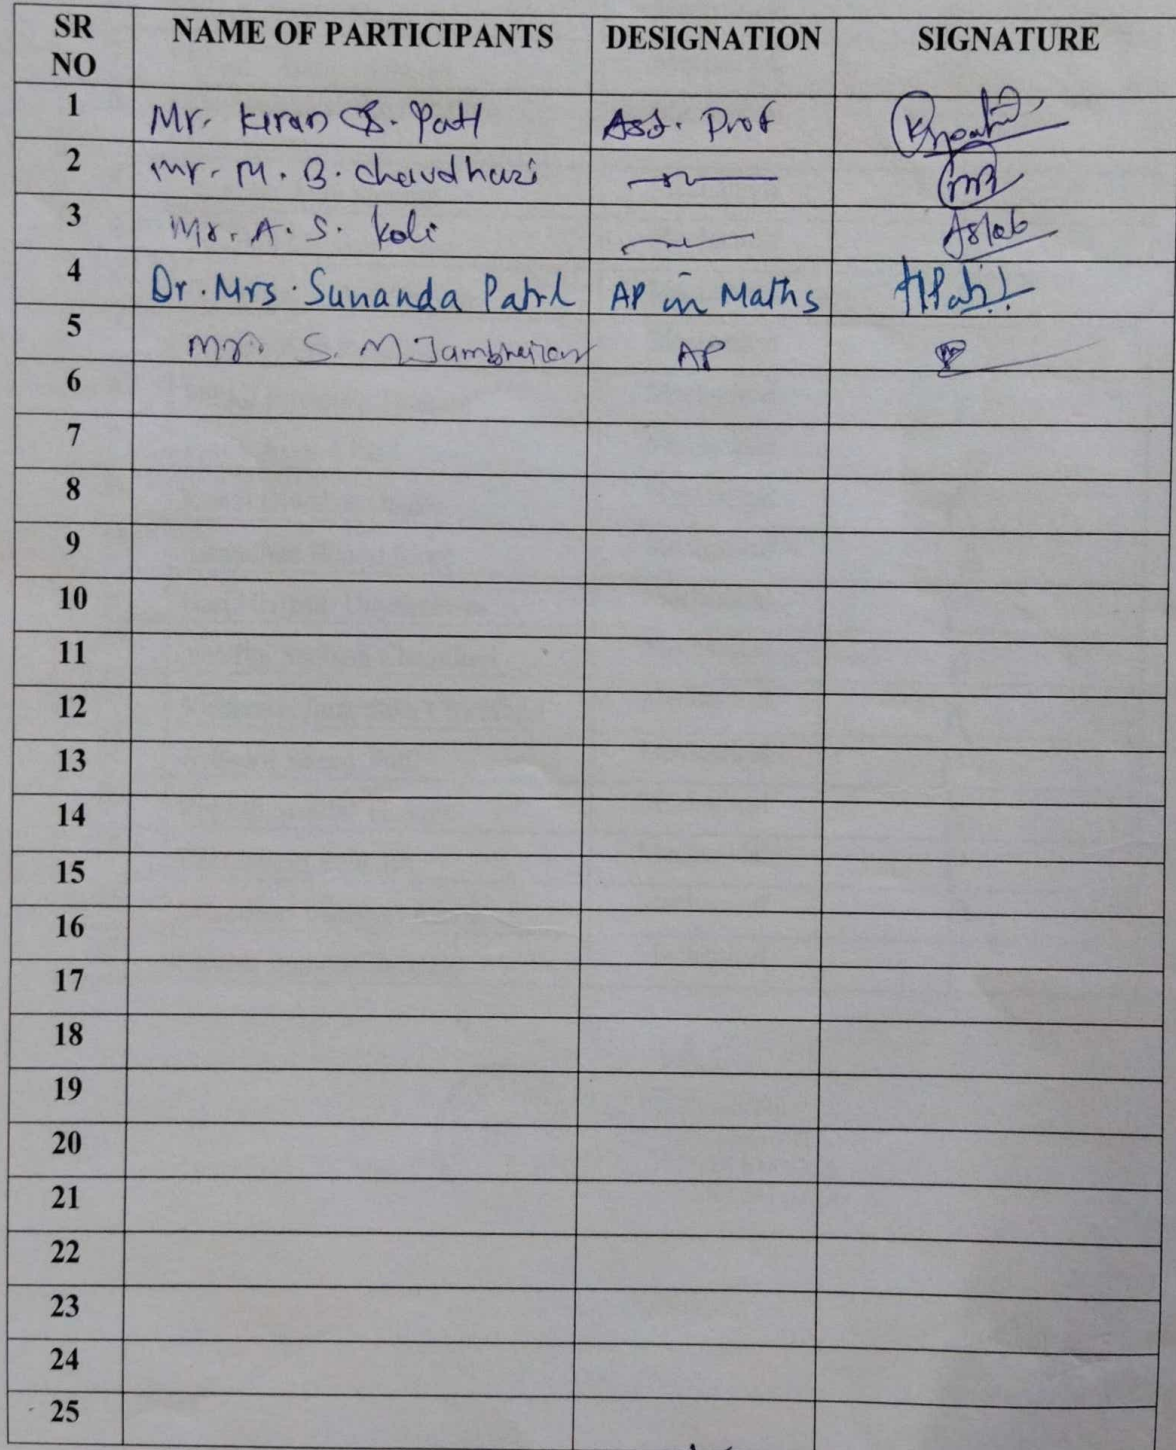 SR NO NAME OF PARTICIPANTS DESIGNATION SIGNATURE
1 Mr. Kiran S. Patil Asst. Prof
2 Mr. M. B. Chaudhari
3 Mr. A. S. Koli
4 Dr. Mrs. Sunanda Patil AP in Maths
5 S. M. AP
6
7
8
9
10
11
12
13
14
15
16
17
18
19
20
21
22
23
24
25